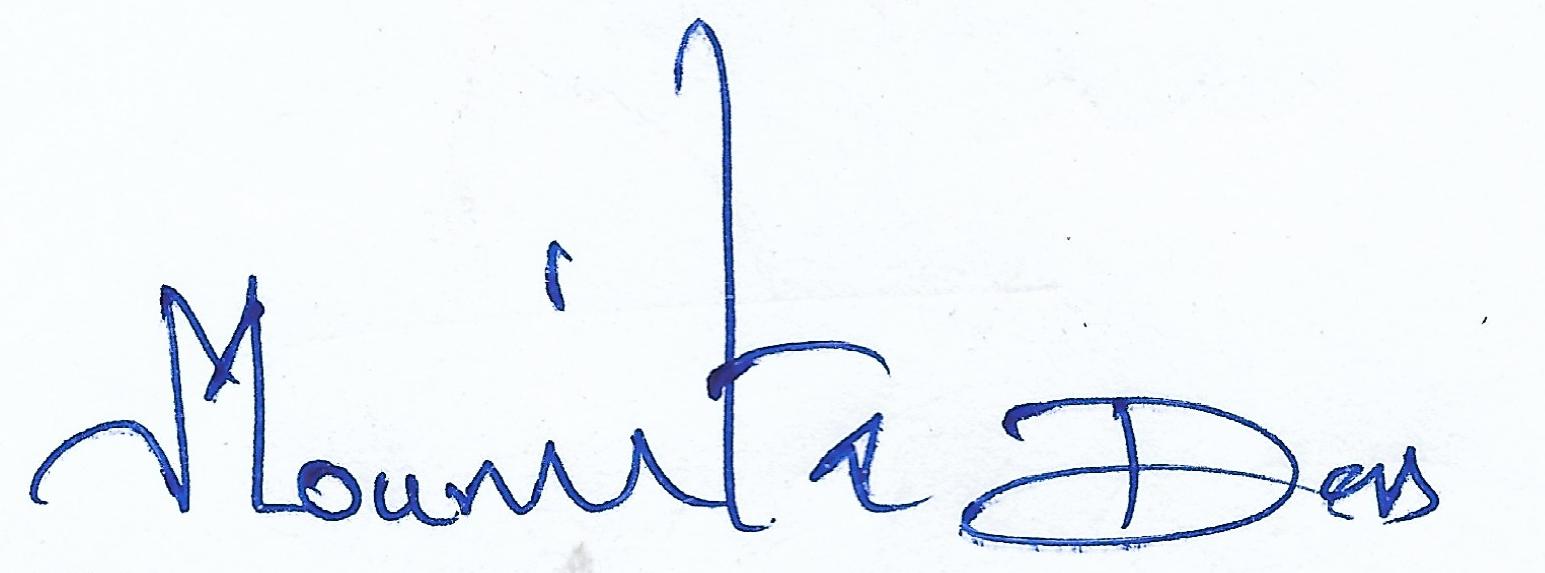 Moumita Das